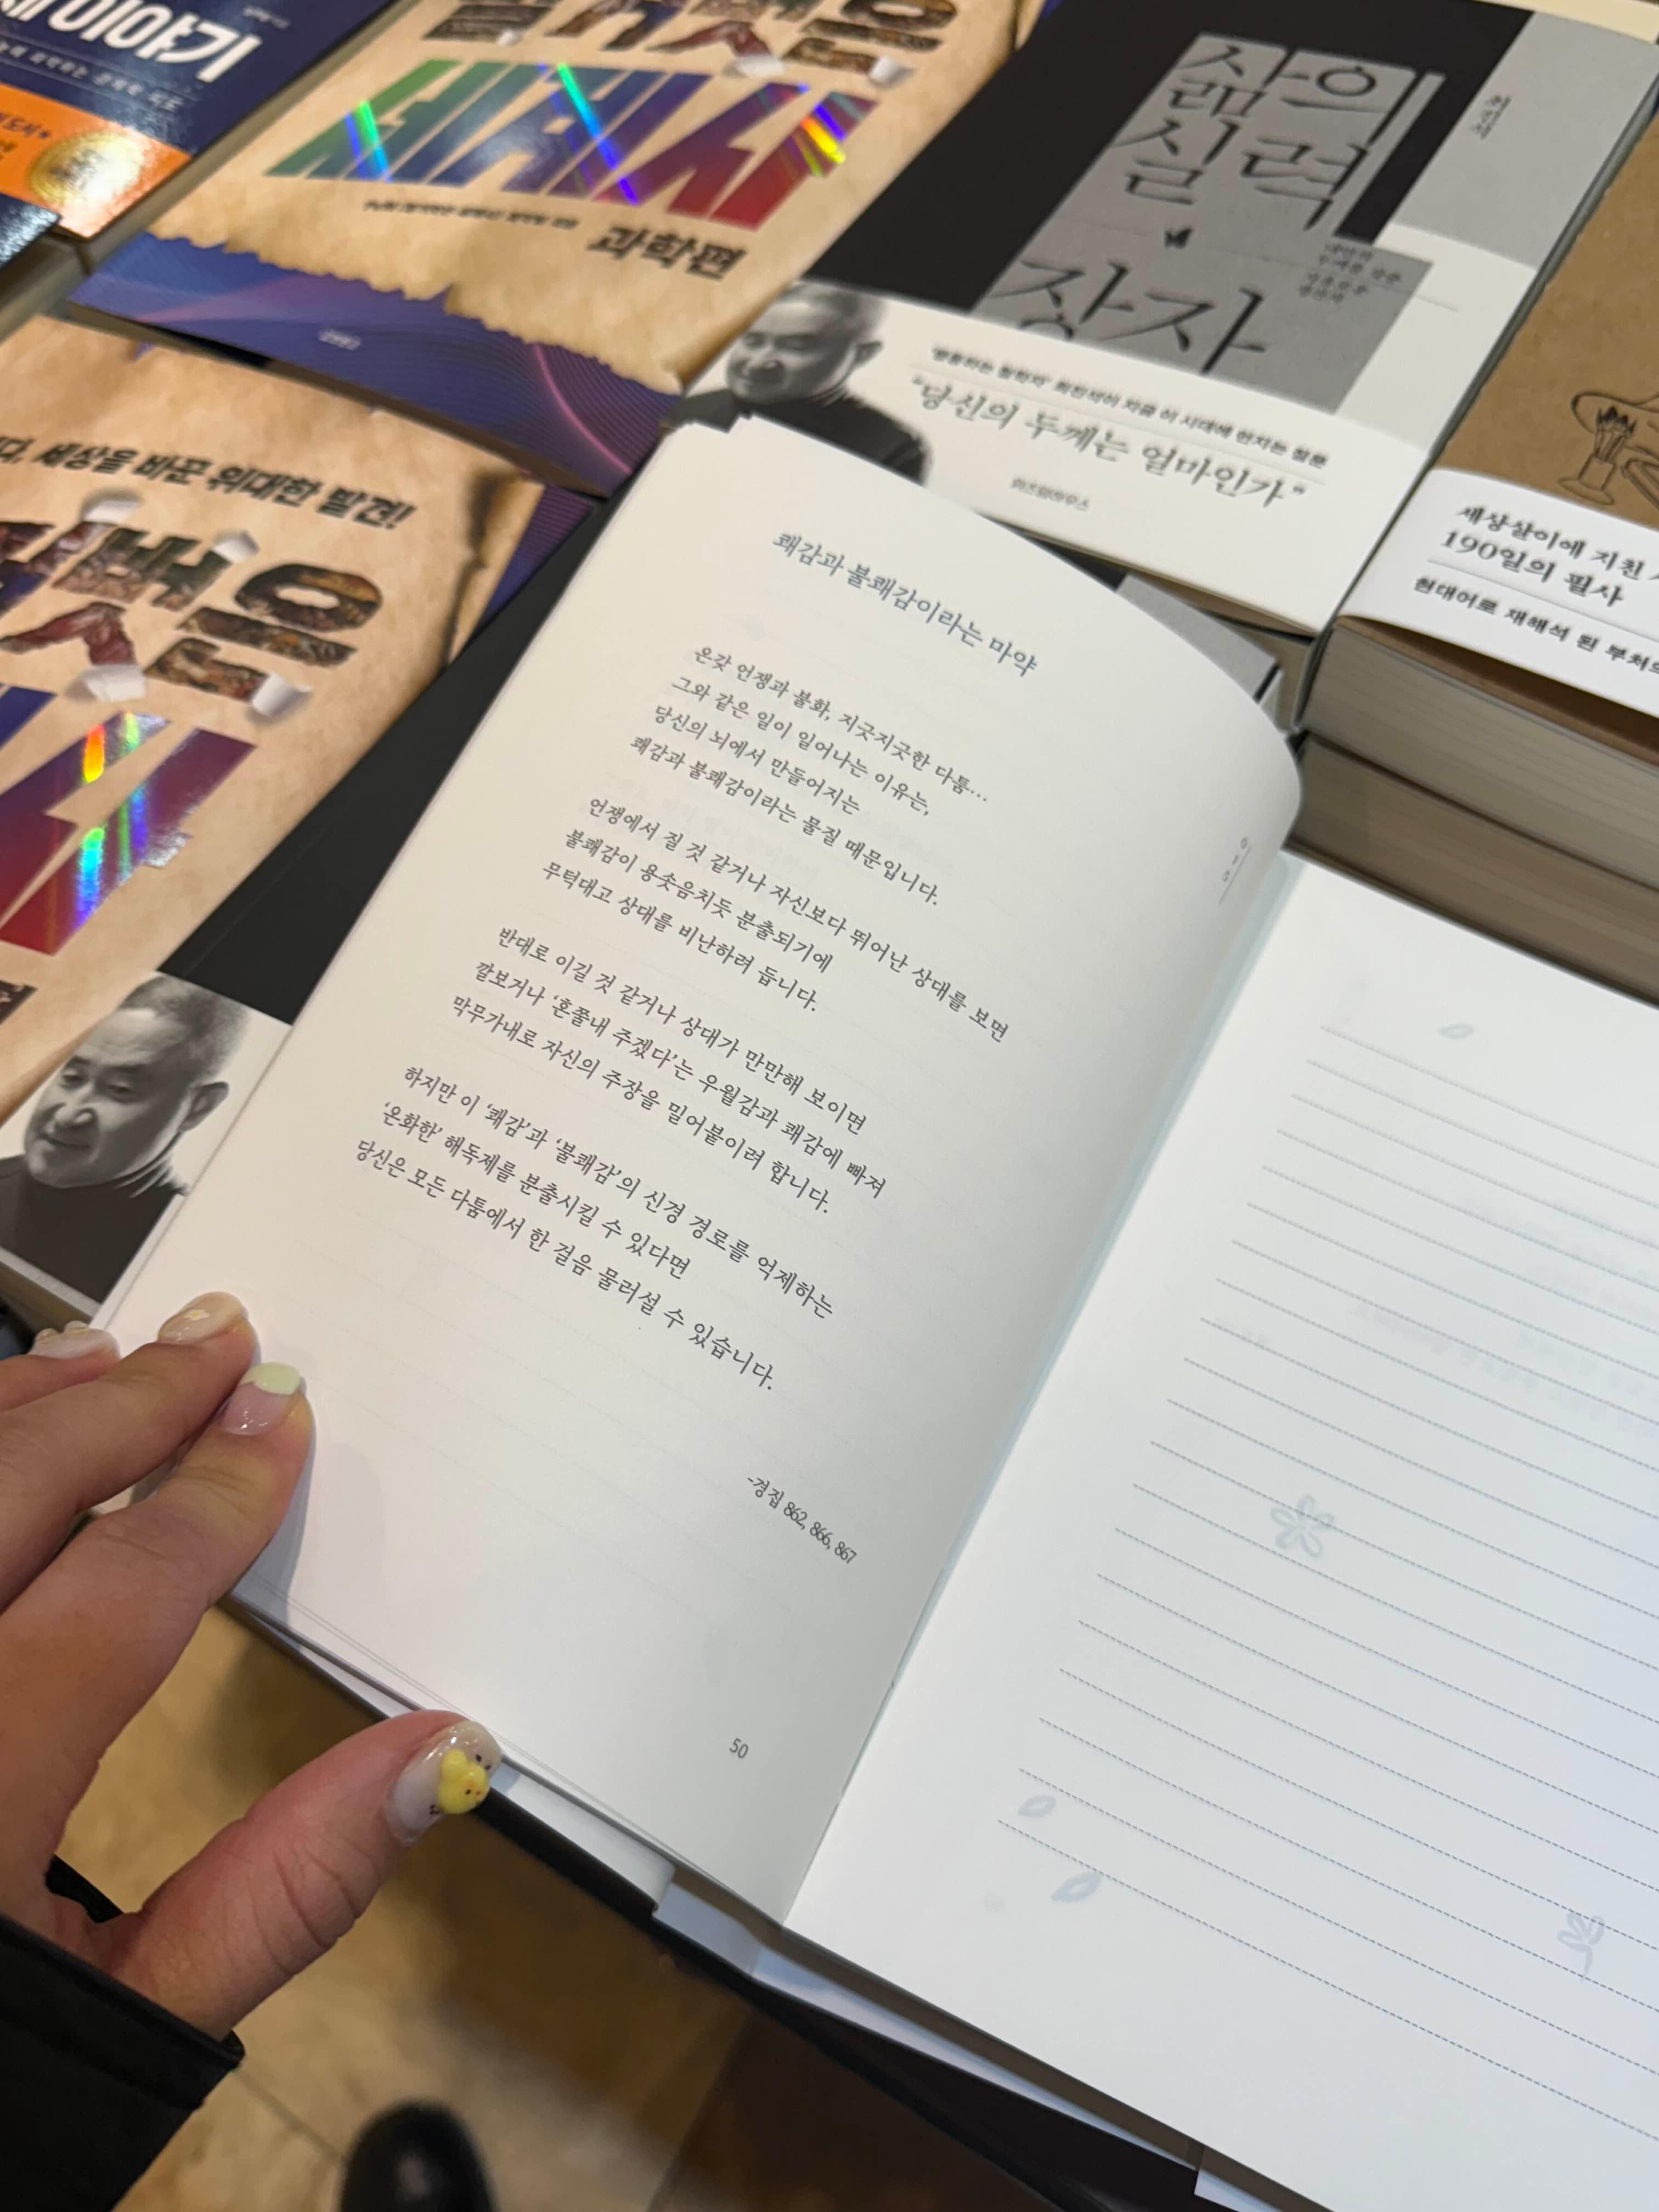 이야기
벌거벗은
세계사
과학편
삶의
실력,
장자
최진석
"당신의 두께는 얼마인가"
위즈덤하우스
세상살이에 지친
190일의 필사
현대어로 재해석 된 부처의
세상을 바꾼 위대한 발견!
쾌감과 불쾌감이라는 마약
015
온갖 언쟁과 불화, 지긋지긋한 다툼…
그와 같은 일이 일어나는 이유는,
당신의 뇌에서 만들어지는
쾌감과 불쾌감이라는 물질 때문입니다.
언쟁에서 질 것 같거나 자신보다 뛰어난 상대를 보면
불쾌감이 용솟음치듯 분출되기에
무턱대고 상대를 비난하려 듭니다.
반대로 이길 것 같거나 상대가 만만해 보이면
깔보거나 '혼쭐내 주겠다'는 우월감과 쾌감에 빠져
막무가내로 자신의 주장을 밀어붙이려 합니다.
하지만 이 '쾌감'과 '불쾌감'의 신경 경로를 억제하는
'온화한' 해독제를 분출시킬 수 있다면
당신은 모든 다툼에서 한 걸음 물러설 수 있습니다.
-경집 862, 866, 867
50